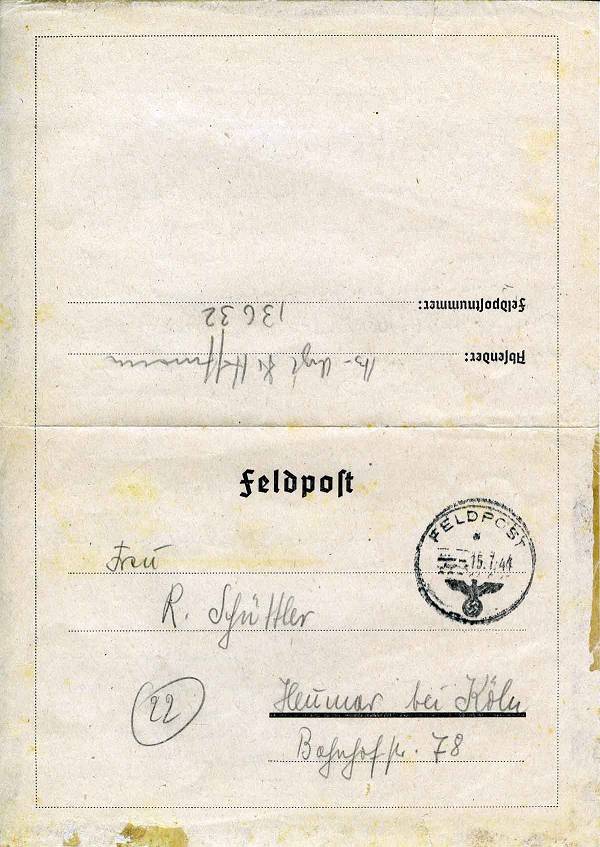 Feldpostnummer:
13632
Absender:
Hoffmann
Feldpost
FELDPOST
15.7.44
Frau
R. Schüttler
22
Heumar bei Köln
Bahnhofstr. 78